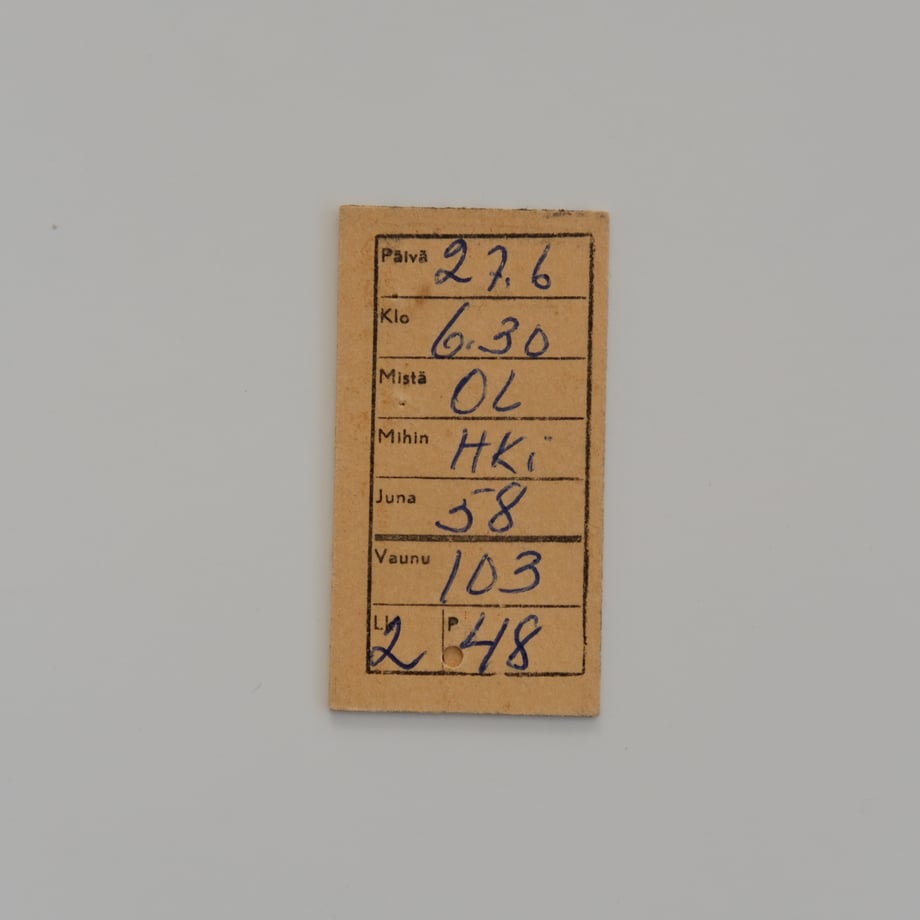 Päivä 27.6
Klo 6.30
Mistä OL
Mihin HKi
Juna 58
Vaunu 103
Lk 2 P 48